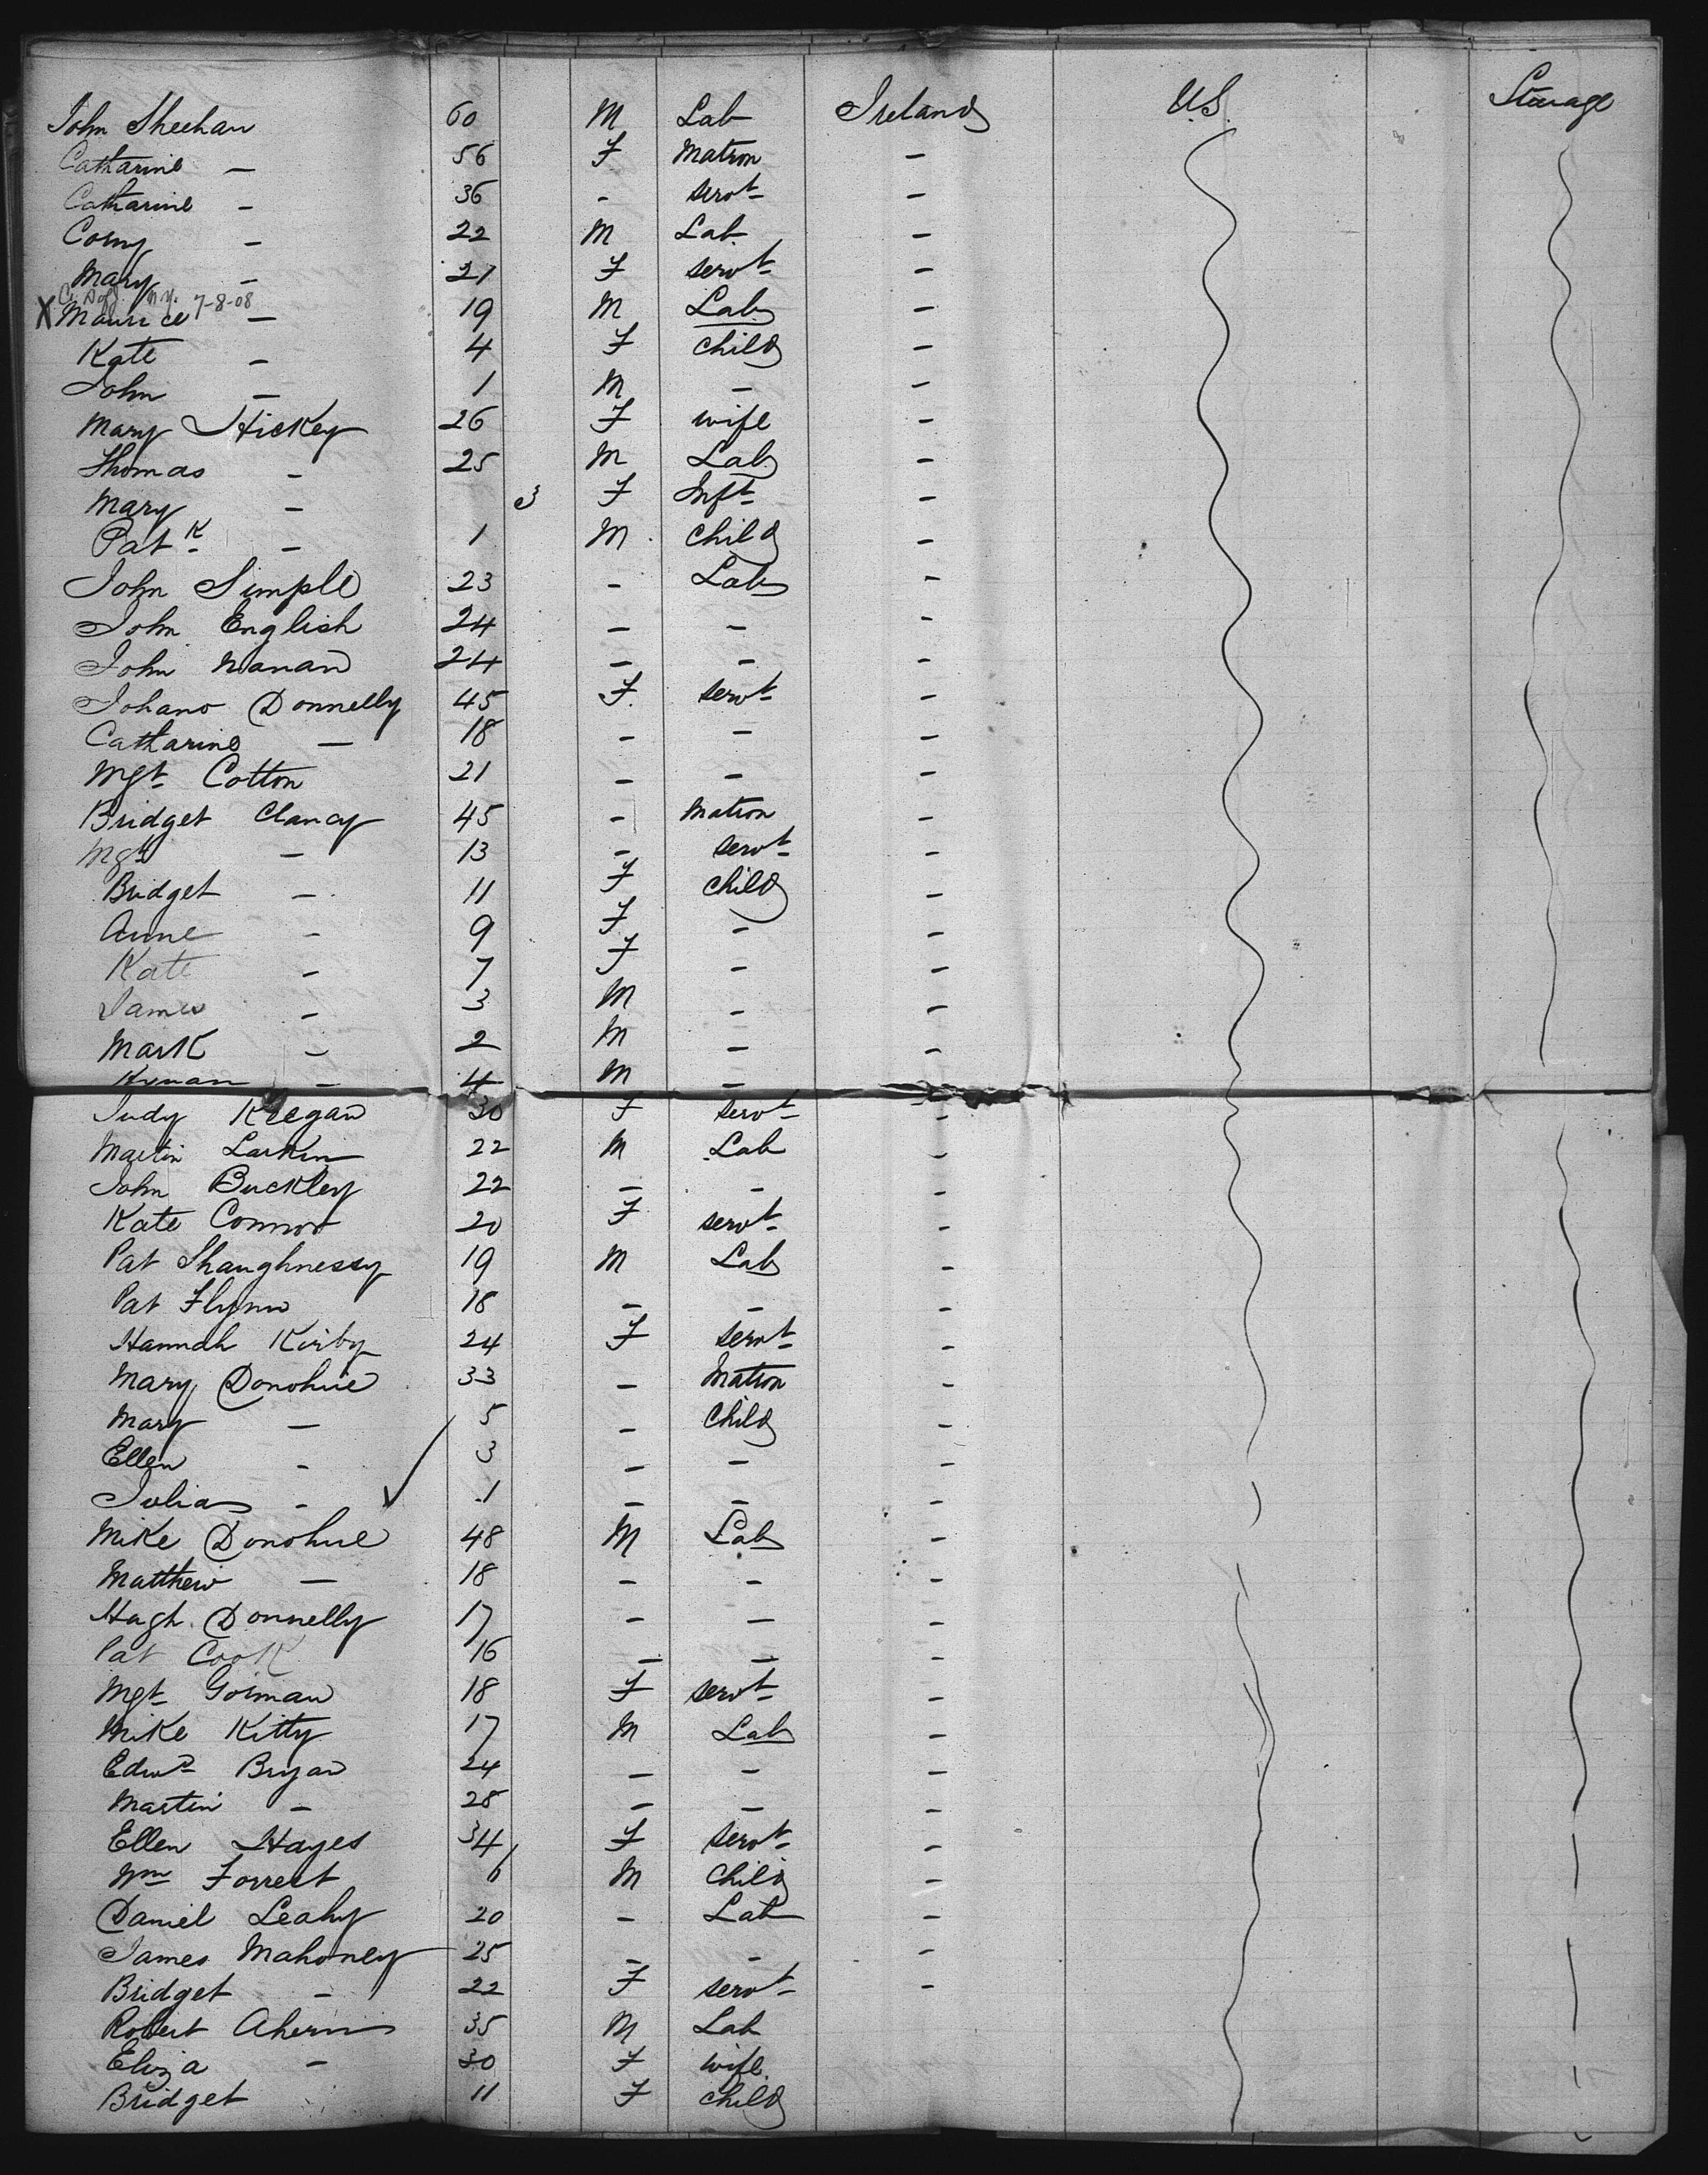 John Sheehan 60 M Lab Ireland U.S. Steerage
Catharine — 56 F Matron —
Catharine — 36 - servt —
Corny — 22 M Lab —
Mary — 21 F servt —
7-8-08
X Maurice — 19 M Lab —
Kate — 4 F child —
John — 1 M — —
Mary Hickey 26 F wife —
Thomas — 25 M Lab —
Mary — 3 F Inft —
Patk — 1 M child —
John Simple 23 - Lab —
John English 24 — — —
John Nanan 24 — — —
Johana Donnelly 45 F servt —
Catharine — 18 - — —
Mgt Cotton 21 - — —
Bridget Clancy 45 - Matron —
Mgt — 13 - servt —
Bridget — 11 F child —
Anne — 9 F — —
Kate — 7 F — —
James — 3 M — —
Mark — 2 M — —
— 4 M —
Judy Keegan 30 F servt —
Martin Larkin 22 M Lab —
John Buckley 22 — — —
Kate Connor 20 F servt —
Pat Shaughnessy 19 M Lab —
Pat Flynn 18 — — —
Hannah Kirby 24 F servt —
Mary Donohue 33 - Matron —
Mary — 5 - child —
Ellen — 3 — — —
Julia — 1 — — —
Mike Donohue 48 M Lab —
Matthew — 18 — — —
Hugh Donnelly 17 — — —
Pat Cook 16 — — —
Mgt Gorman 18 F servt —
Mike Kitty 17 M Lab —
Edwd Bryan 24 — — —
Martin — 28 — — —
Ellen Hayes 34 F servt —
Wm Forrest 6 M child —
Daniel Leahy 20 - Lab —
James Mahoney 25 — — —
Bridget — 22 F servt —
Robert Ahern 35 M Lab
Eliza — 30 F wife
Bridget 11 F child